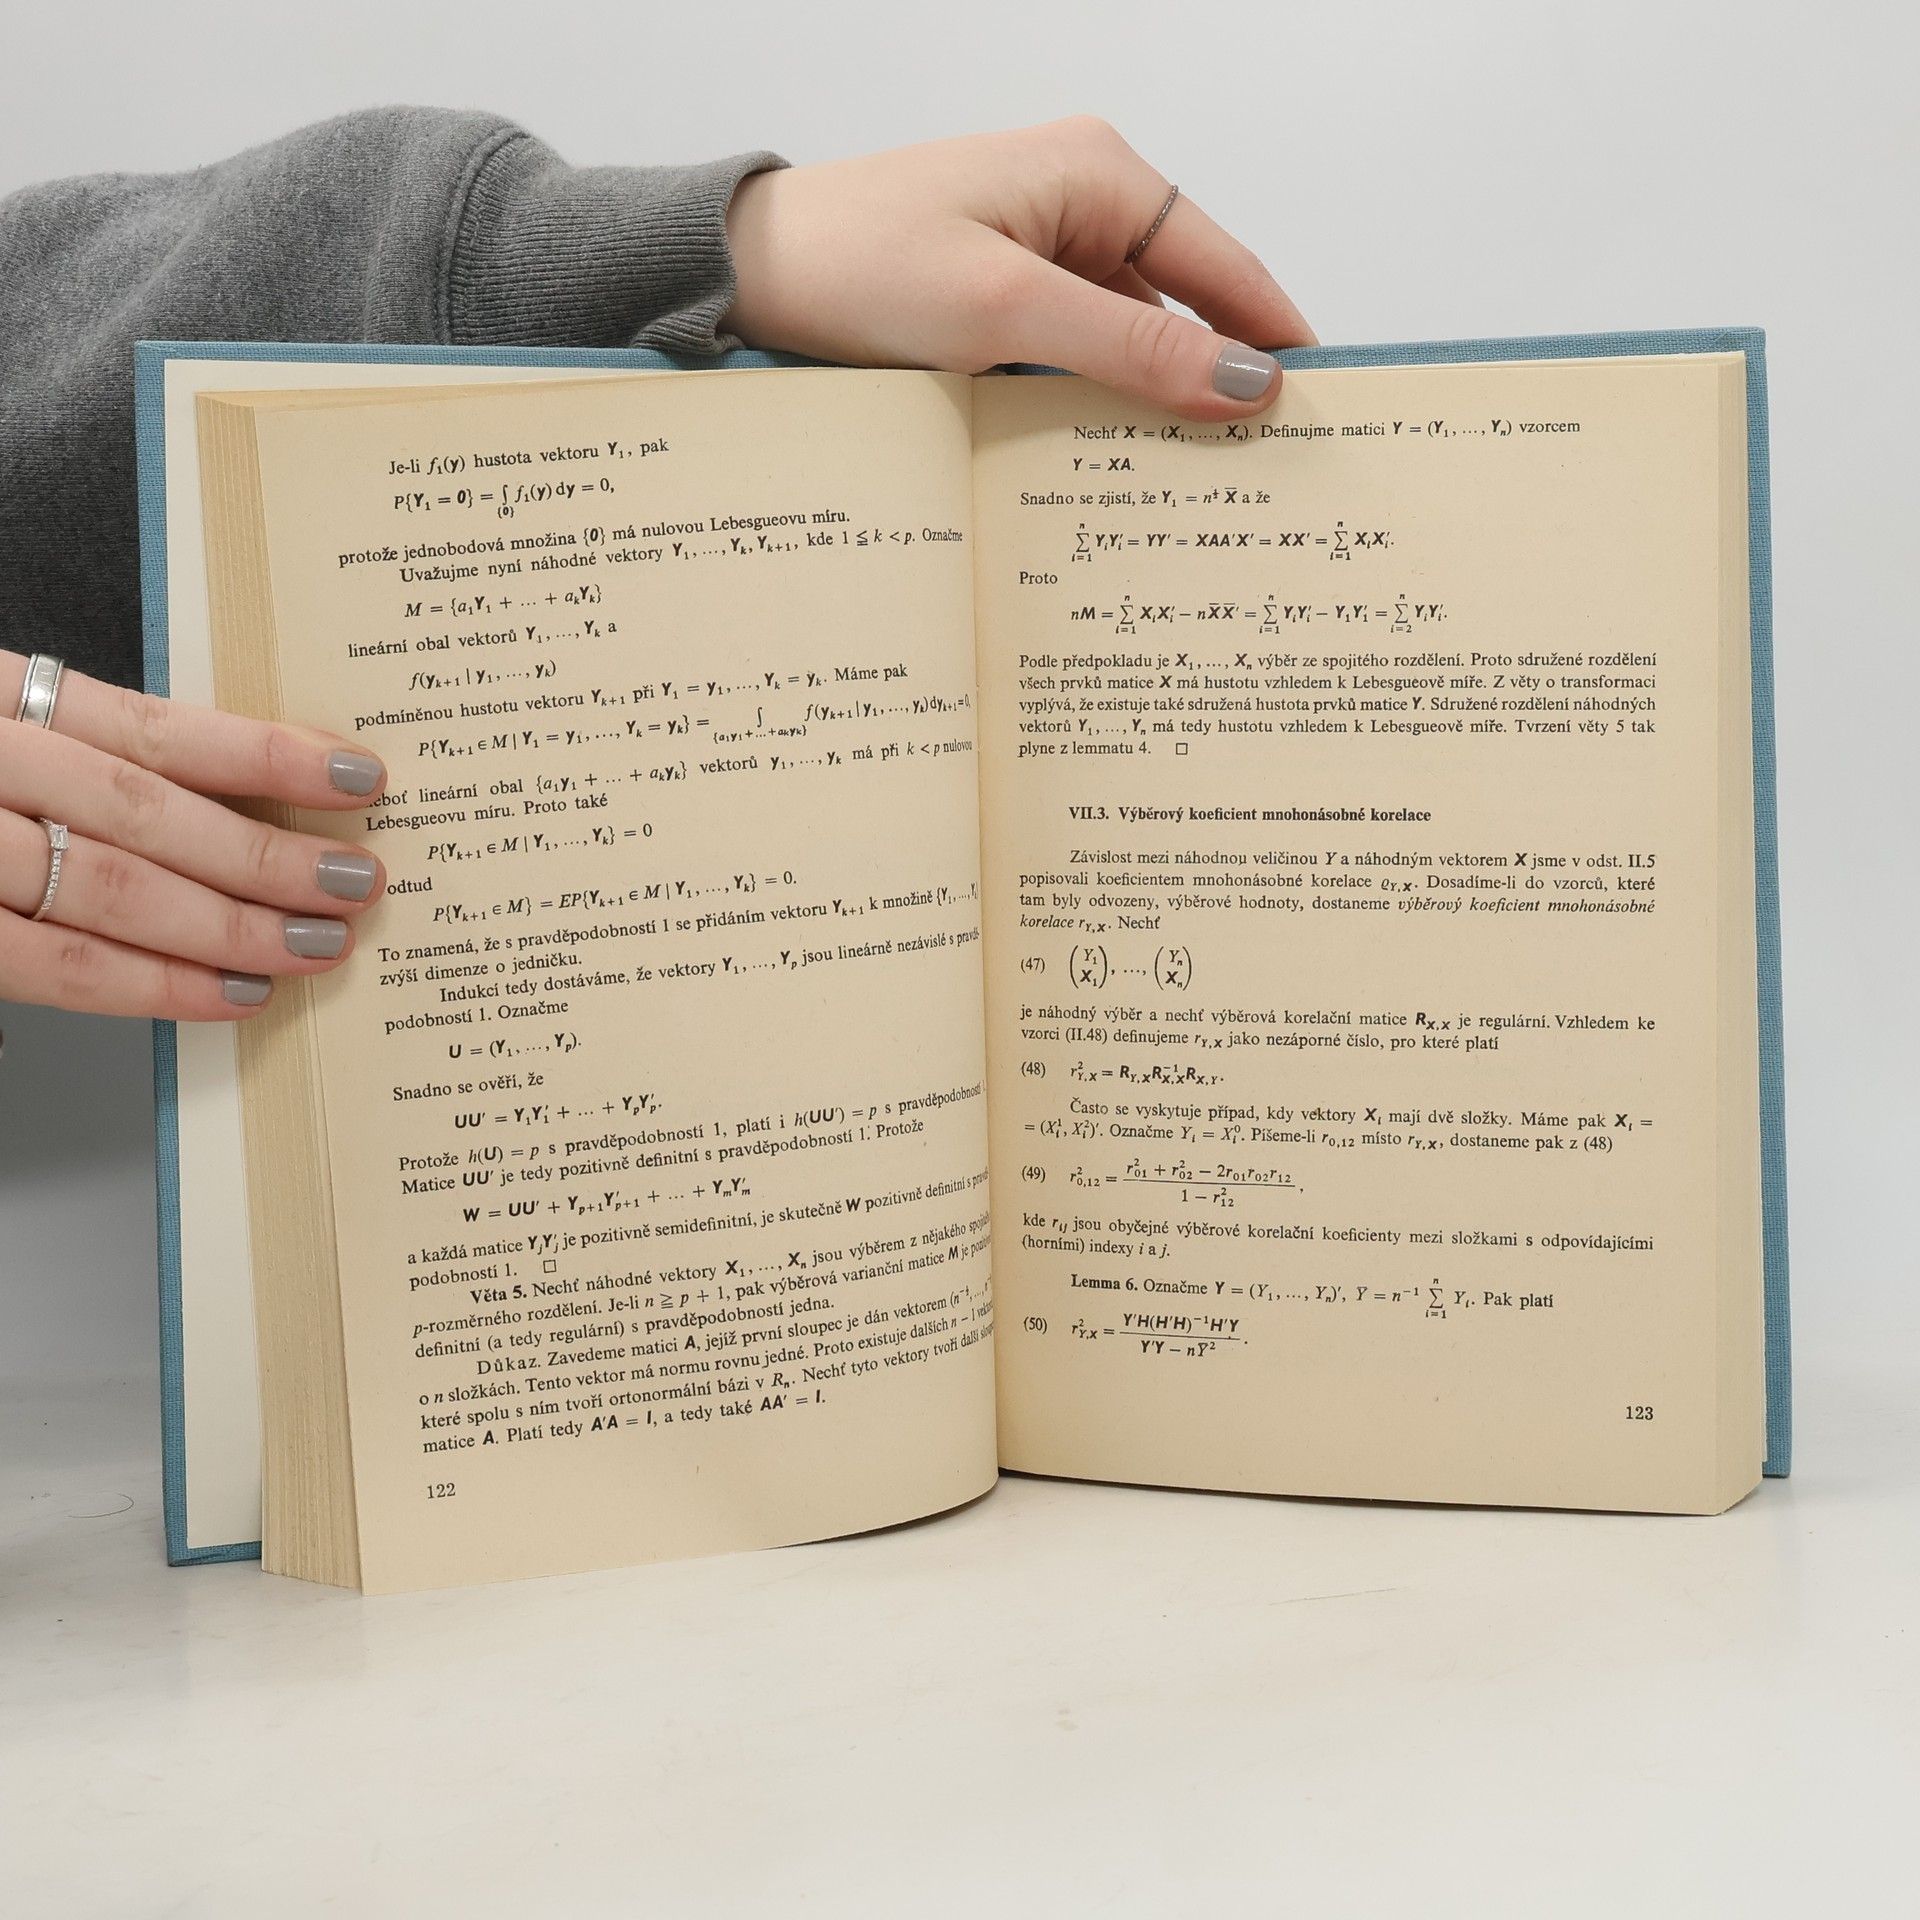 Je-li f₁(y) hustota vektoru Y₁, pak
P{Y₁ = 0} = ∫ f₁(y) dy = 0,
{0}
protože jednobodová množina {0} má nulovou Lebesgueovu míru.
Uvažujme nyní náhodné vektory Y₁, ..., Yₖ, Yₖ₊₁, kde 1 ≦ k < p. Označme
M = {a₁Y₁ + ... + aₖYₖ}
lineární obal vektorů Y₁, ..., Yₖ a
f(yₖ₊₁ | y₁, ..., yₖ)
podmíněnou hustotu vektoru Yₖ₊₁ při Y₁ = y₁, ..., Yₖ = yₖ. Máme pak
P{Yₖ₊₁ ∈ M | Y₁ = y₁, ..., Yₖ = yₖ} = ∫ f(yₖ₊₁ | y₁, ..., yₖ) dyₖ₊₁ = 0,
{a₁y₁ + ... + aₖyₖ}
lineární obal {a₁y₁ + ... + aₖyₖ} vektorů y₁, ..., yₖ má při k < p nulovou
Lebesgueovu míru. Proto také
P{Yₖ₊₁ ∈ M | Y₁, ..., Yₖ} = 0
odtud
P{Yₖ₊₁ ∈ M} = EP{Yₖ₊₁ ∈ M | Y₁, ..., Yₖ} = 0.
To znamená, že s pravděpodobností 1 se přidáním vektoru Yₖ₊₁ k množině {Y₁, ..., Yₖ}
zvýší dimenze o jedničku.
Indukcí tedy dostáváme, že vektory Y₁, ..., Yₚ jsou lineárně nezávislé s pravdě-
podobností 1. Označme
U = (Y₁, ..., Yₚ).
Snadno se ověří, že
UU′ = Y₁Y₁′ + ... + YₚYₚ′.
Protože h(U) = p s pravděpodobností 1, platí i h(UU′) = p s pravděpodobností 1.
Matice UU′ je tedy pozitivně definitní s pravděpodobností 1. Protože
W = UU′ + Yₚ₊₁Y′ₚ₊₁ + ... + YₘY′ₘ
a každá matice YⱼYⱼ′ je pozitivně semidefinitní, je skutečně W pozitivně definitní s
podobností 1. □
Věta 5. Nechť náhodné vektory X₁, ..., Xₙ jsou výběrem z nějakého
p-rozměrného rozdělení. Je-li n ≧ p + 1, pak výběrová varianční matice M je
definitní (a tedy regulární) s pravděpodobností jedna.
Důkaz. Zavedeme matici A, jejíž první sloupec je dán vektorem (n^{-½}, ...,
o n složkách. Tento vektor má normu rovnu jedné. Proto existuje dalších n − 1
které spolu s ním tvoří ortonormální bázi v Rₙ. Nechť tyto vektory tvoří další
matice A. Platí tedy A′A = I, a tedy také AA′ = I.
122
Nechť X = (X₁, ..., Xₙ). Definujme matici Y = (Y₁, ..., Yₙ) vzorcem
Y = XA.
Snadno se zjistí, že Y₁ = n^{½} X̄ a že
∑ᵢ₌₁ⁿ YᵢYᵢ′ = YY′ = XAA′X′ = XX′ = ∑ᵢ₌₁ⁿ XᵢXᵢ′.
Proto
nM = ∑ᵢ₌₁ⁿ XᵢXᵢ′ − nX̄X̄′ = ∑ᵢ₌₁ⁿ YᵢYᵢ′ − Y₁Y₁′ = ∑ᵢ₌₂ⁿ YᵢYᵢ′.
Podle předpokladu je X₁, ..., Xₙ výběr ze spojitého rozdělení. Proto sdružené rozdělení
všech prvků matice X má hustotu vzhledem k Lebesgueově míře. Z věty o transformaci
vyplývá, že existuje také sdružená hustota prvků matice Y. Sdružené rozdělení náhodných
vektorů Y₁, ..., Yₙ má tedy hustotu vzhledem k Lebesgueově míře. Tvrzení věty 5 tak
plyne z lemmatu 4. □
VII.3. Výběrový koeficient mnohonásobné korelace
Závislost mezi náhodnou veličinou Y a náhodným vektorem X jsme v odst. II.5
popisovali koeficientem mnohonásobné korelace ϱ_{Y,X}. Dosadíme-li do vzorců, které
tam byly odvozeny, výběrové hodnoty, dostaneme výběrový koeficient mnohonásobné
korelace r_{Y,X}. Nechť
(47) (Y₁ X₁), ..., (Yₙ Xₙ)
je náhodný výběr a nechť výběrová korelační matice R_{X,X} je regulární. Vzhledem ke
vzorci (II.48) definujeme r_{Y,X} jako nezáporné číslo, pro které platí
(48) r²_{Y,X} = R_{Y,X}R⁻¹_{X,X}R_{X,Y}.
Často se vyskytuje případ, kdy vektory Xᵢ mají dvě složky. Máme pak Xᵢ =
= (Xᵢ¹, Xᵢ²)′. Označme Yᵢ = Xᵢ⁰. Píšeme-li r_{0,12} místo r_{Y,X}, dostaneme pak z (48)
(49) r²_{0,12} = (r²₀₁ + r²₀₂ − 2r₀₁r₀₂r₁₂) / (1 − r²₁₂),
kde rᵢⱼ jsou obyčejné výběrové korelační koeficienty mezi složkami s odpovídajícími
(horními) indexy i a j.
Lemma 6. Označme Y = (Y₁, ..., Yₙ)′, Ȳ = n⁻¹ ∑ᵢ₌₁ⁿ Yᵢ. Pak platí
(50) r²_{Y,X} = Y′H(H′H)⁻¹H′Y / (Y′Y − nȲ²).
123